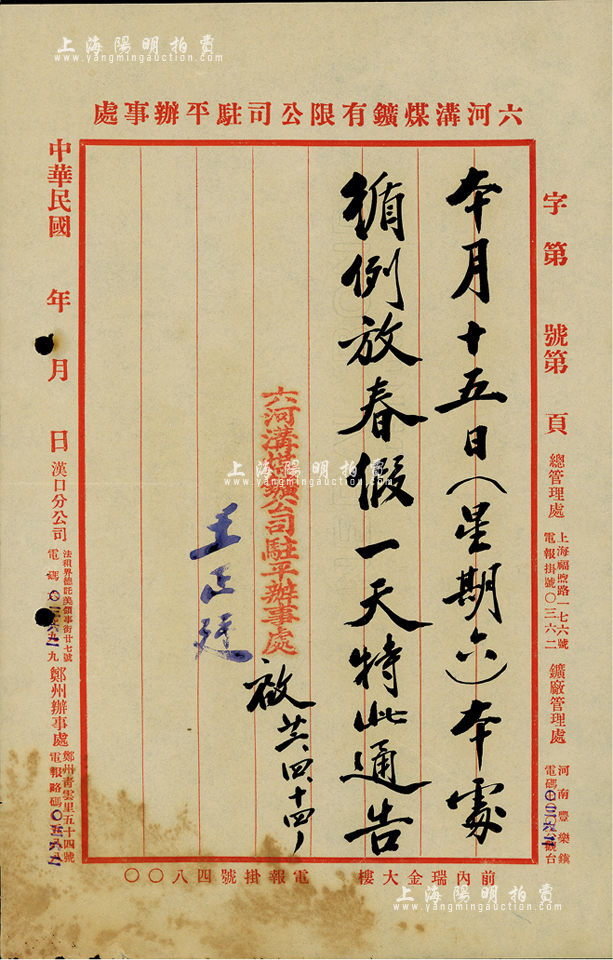 上海陽明拍賣
www.yangmingauction.com
六河溝煤鑛有限公司駐平辦事處
字第　號第　頁
總管理處
上海福煦路一七六號
電報掛號〇三六二
鑛廠管理處
河南豐樂鎮
本月十五日（星期六）本處
循例放春假一天特此通告
六河溝煤鑛公司駐平辦事處
啟 廿六、四、十四、
王正廷
中華民國　年　月　日
漢口分公司
法租界德託美領事街廿七號
鄭州辦事處
鄭州青雲里五十四號
前內瑞金大樓　電報掛號四八〇〇
上海陽明拍賣
www.yangmingauction.com
上海陽明拍賣
www.yangmingauction.com